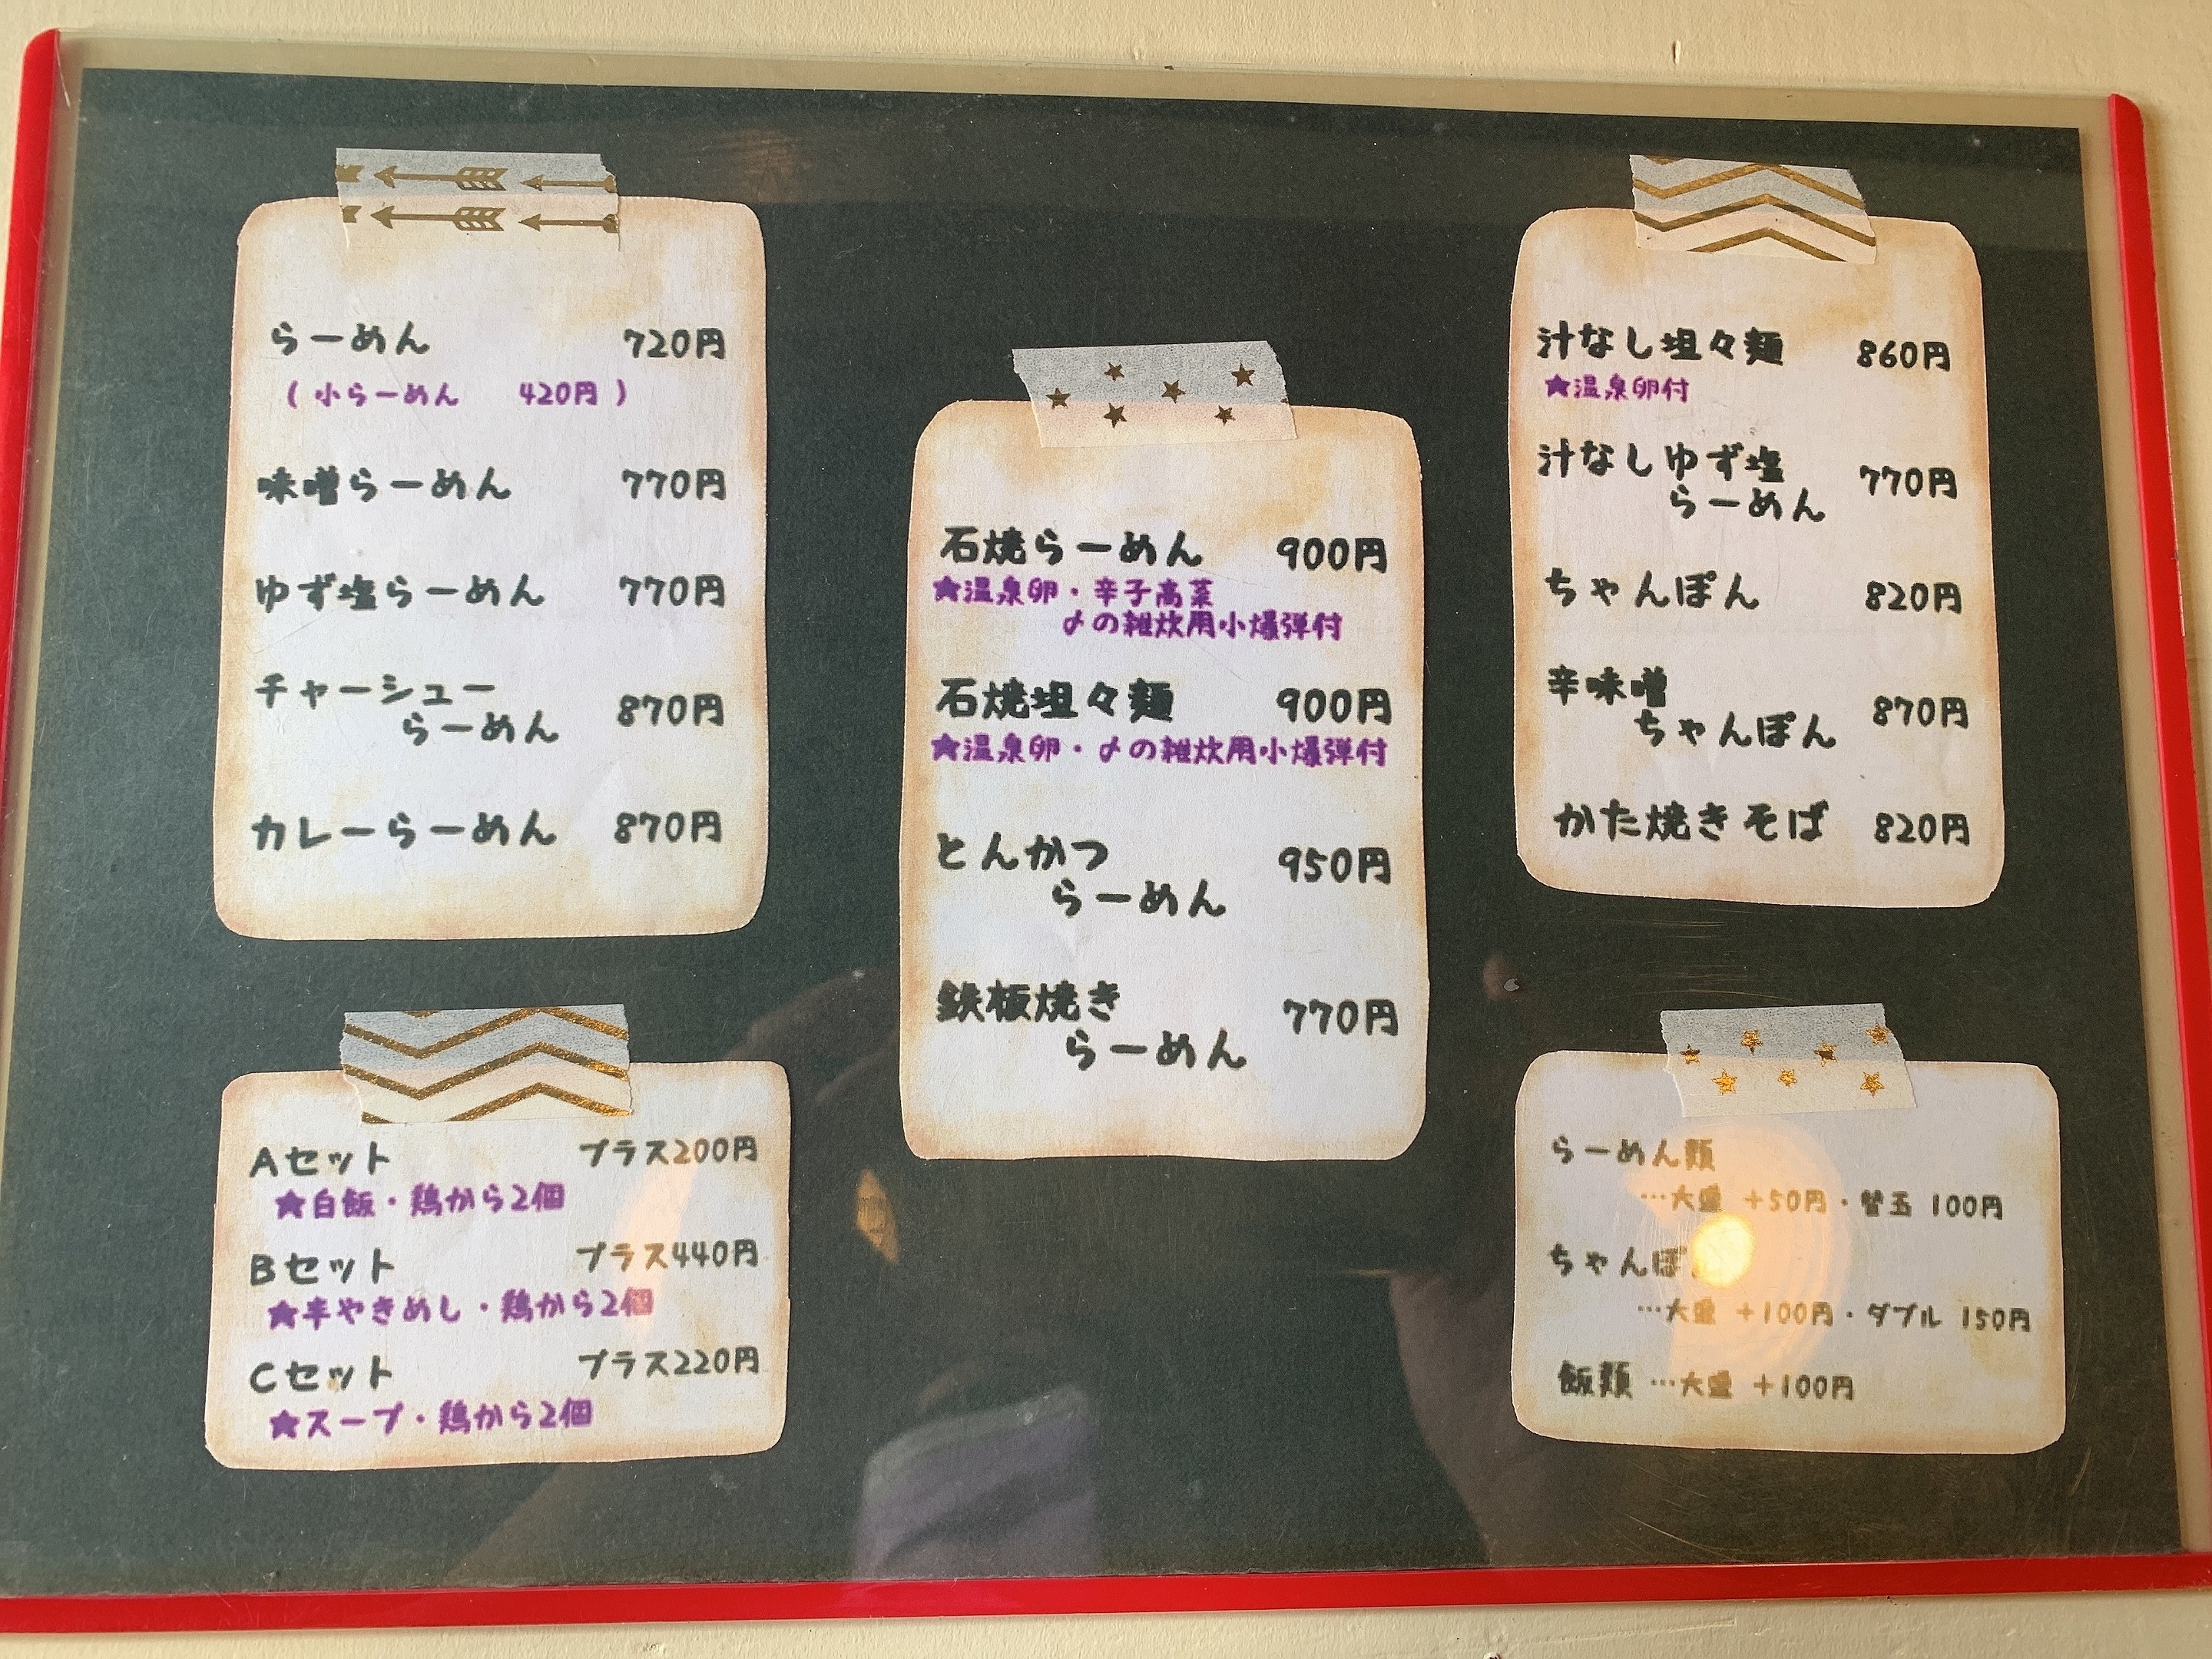 らーめん 720円
(小らーめん 420円)
味噌らーめん 770円
ゆず塩らーめん 770円
チャーシュー
らーめん 870円
カレーらーめん 870円
Aセット プラス200円
★白飯・鶏から2個
Bセット プラス440円
★半やきめし・鶏から2個
Cセット プラス220円
★スープ・鶏から2個
石焼らーめん 900円
★温泉卵・辛子高菜
〆の雑炊用小爆弾付
石焼坦々麺 900円
★温泉卵・〆の雑炊用小爆弾付
とんかつ
らーめん 950円
鉄板焼き
らーめん 770円
汁なし坦々麺 860円
★温泉卵付
汁なしゆず塩
らーめん 770円
ちゃんぽん 820円
辛味噌
ちゃんぽん 870円
かた焼きそば 820円
らーめん類
…大盛 +50円・替玉 100円
ちゃんぽ
…大盛 +100円・ダブル 150円
飯類 …大盛 +100円